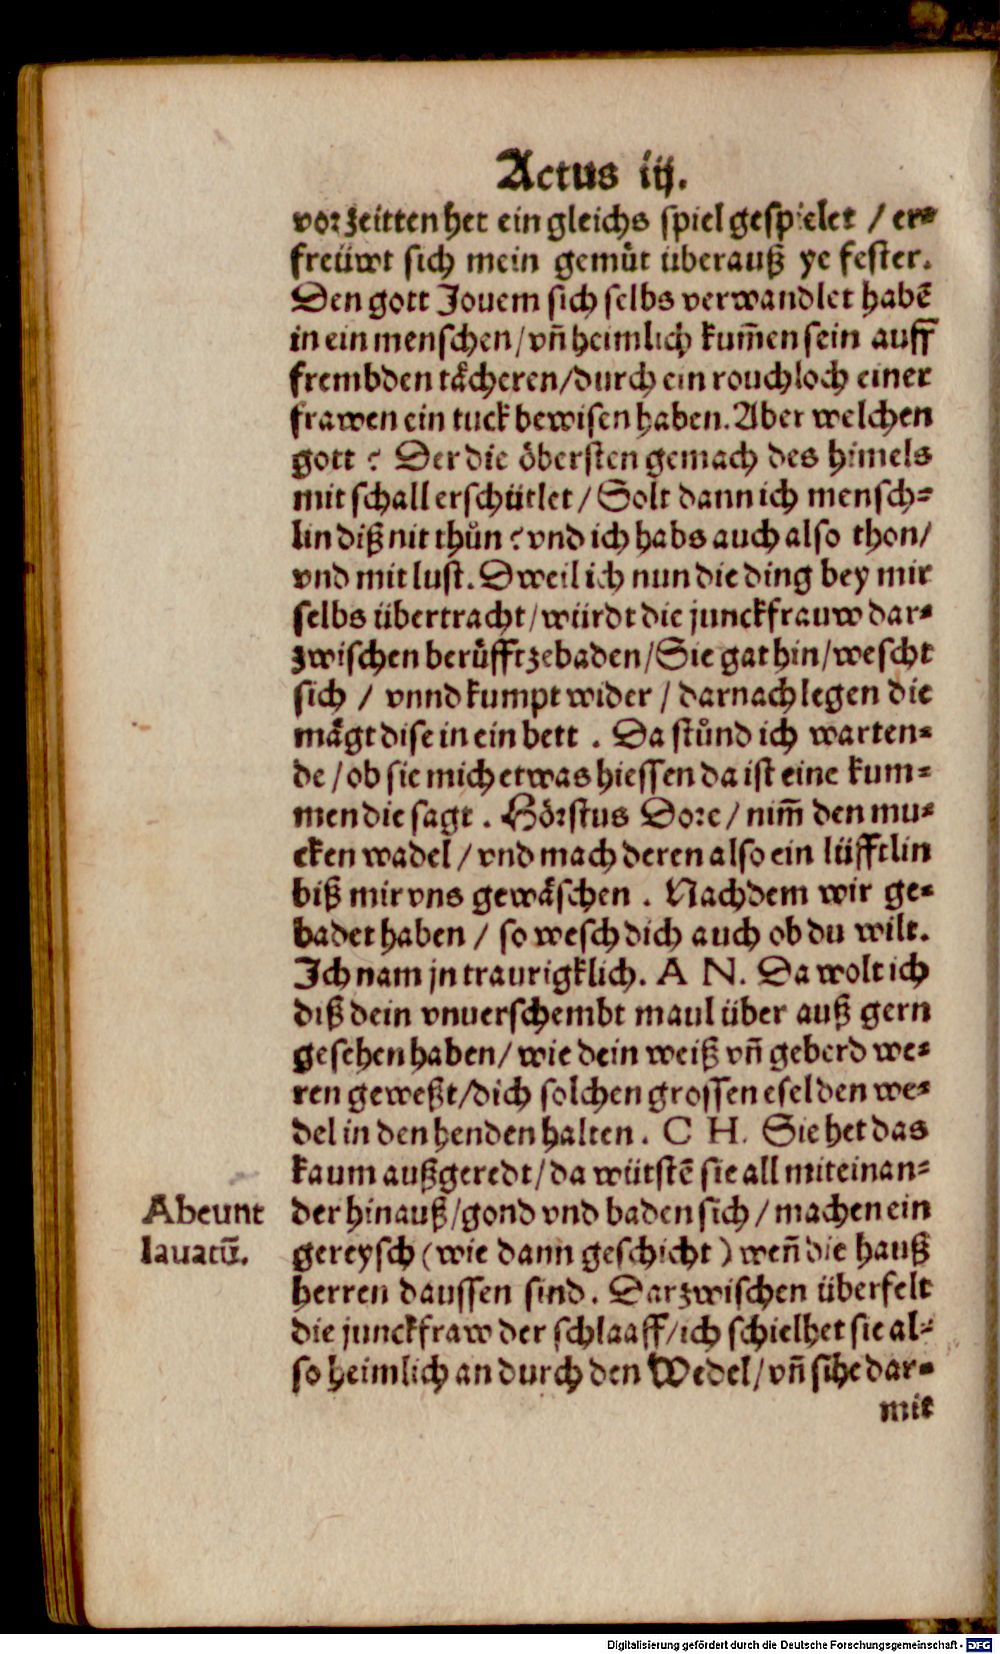 Actus iij.
vorzeitten het ein gleichs spiel gespielet / er⸗
freüwt sich mein gemuͤt überauß ye fester.
Den gott Jouem sich selbs verwandlet habẽ
in ein menschen / vñ heimlich kum̃en sein auff
frembden taͤcheren / durch ein rouchloch einer
frawen ein tuck bewisen haben. Aber welchen
gott ? Der die oͤbersten gemach des himels
mit schall erschütlet / Solt dann ich mensch⸗
lin diß nit thuͦn ? vnd ich habs auch also thon /
vnd mit lust. Dweil ich nun die ding bey mir
selbs übertracht / würdt die junckfrauw dar⸗
zwischen beruͤfft ze baden / Sie gat hin / wescht
sich / vnnd kumpt wider / darnach legen die
maͤgt dise in ein bett . Da stuͦnd ich warten⸗
de / ob sie mich etwas hiessen da ist eine kum⸗
men die sagt . Hoͤrstus Dore / nim̃ den mu⸗
cken wadel / vnd mach deren also ein lüfftlin
biß mir vns gewaͤschen . Nachdem wir ge⸗
badet haben / so wesch dich auch ob du wilt.
Ich nam jn traurigklich. A N. Da wolt ich
diß dein vnuerschembt maul über auß gern
gesehen haben / wie dein weiß vñ geberd we⸗
ren geweßt / dich solchen grossen esel den we⸗
del in den henden halten . C H. Sie het das
kaum außgeredt / da wütstẽ sie all miteinan⸗
der hinauß / gond vnd baden sich / machen ein
gereysch (wie dann geschicht) weñ die hauß
herren daussen sind . Darzwischen überfelt
die junckfraw der schlaaff / ich schielhet sie al⸗
so heimlich an durch den Wedel / vñ sihe dar⸗
mit
Abeunt
lauatũ.
Digitalisierung gefördert durch die Deutsche Forschungsgemeinschaft - DFG